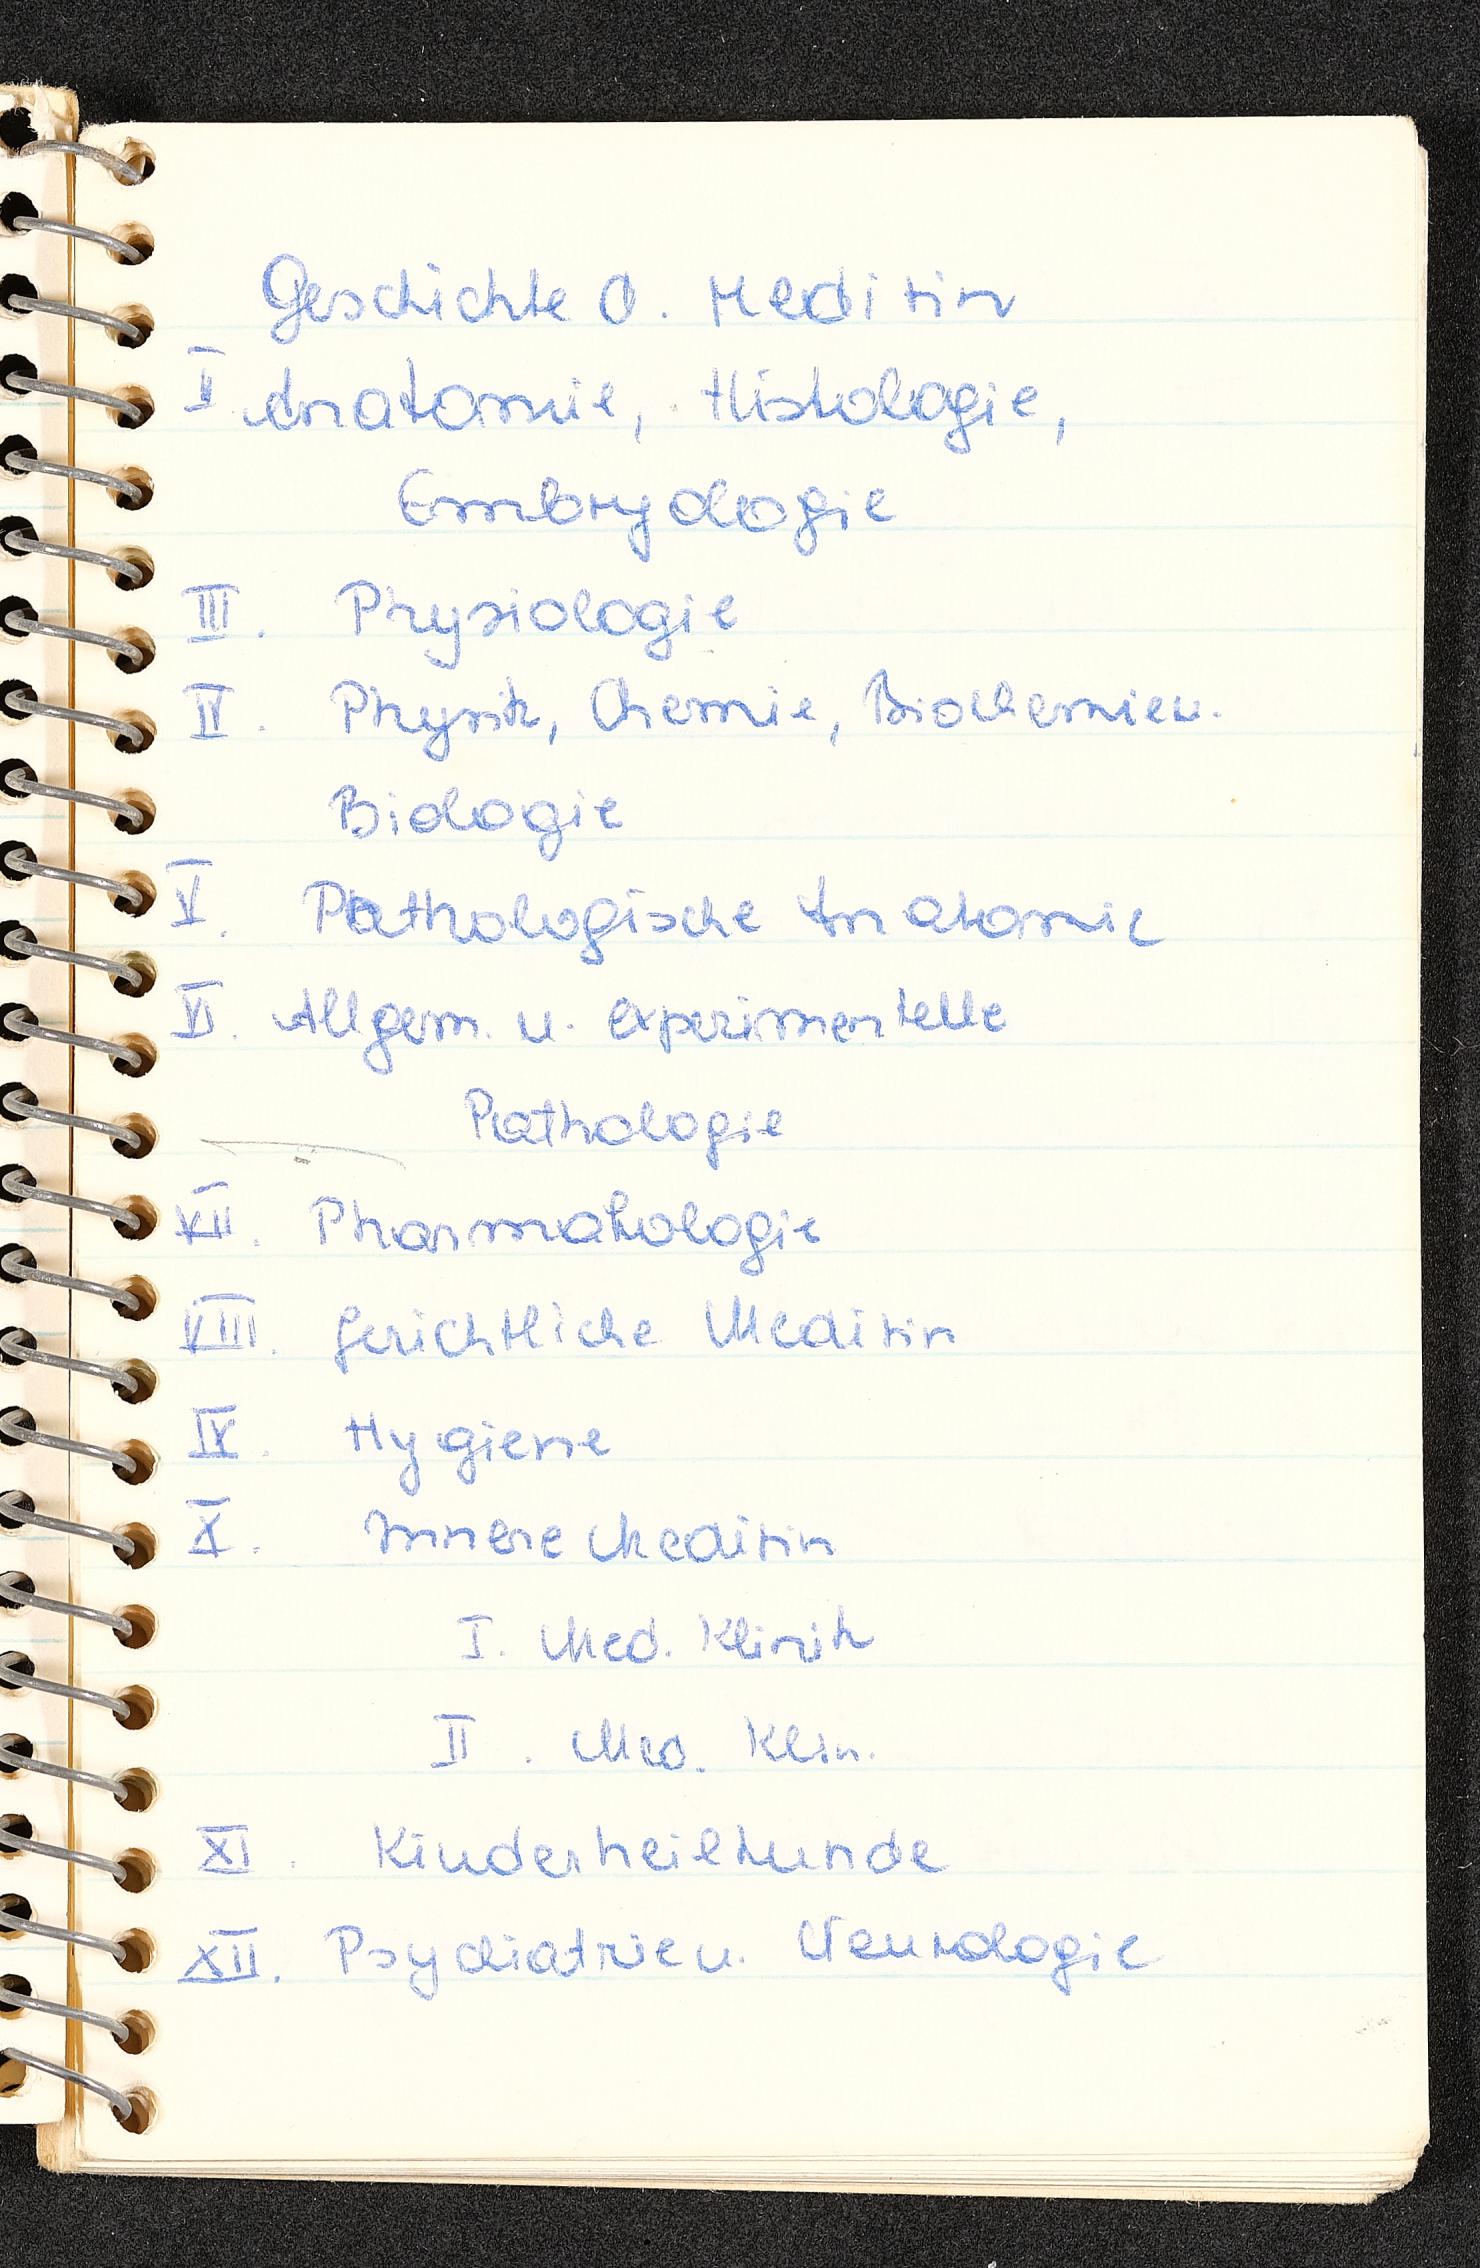 Geschichte d. Medizin
II Anatomie, Histologie,
Embryologie
III. Physiologie
IV. Physik, Chemie, Biochemie u.
Biologie
V. Pathologische Anatomie
VI. Allgem. u. experimentelle
Pathologie
VII. Pharmakologie
VIII. Gerichtliche Medizin
IX. Hygiene
X. Innere Medizin
I. Med. Klinik
II. Med. Klin.
XI. Kinderheilkunde
XII. Psychiatrie u. Neurologie